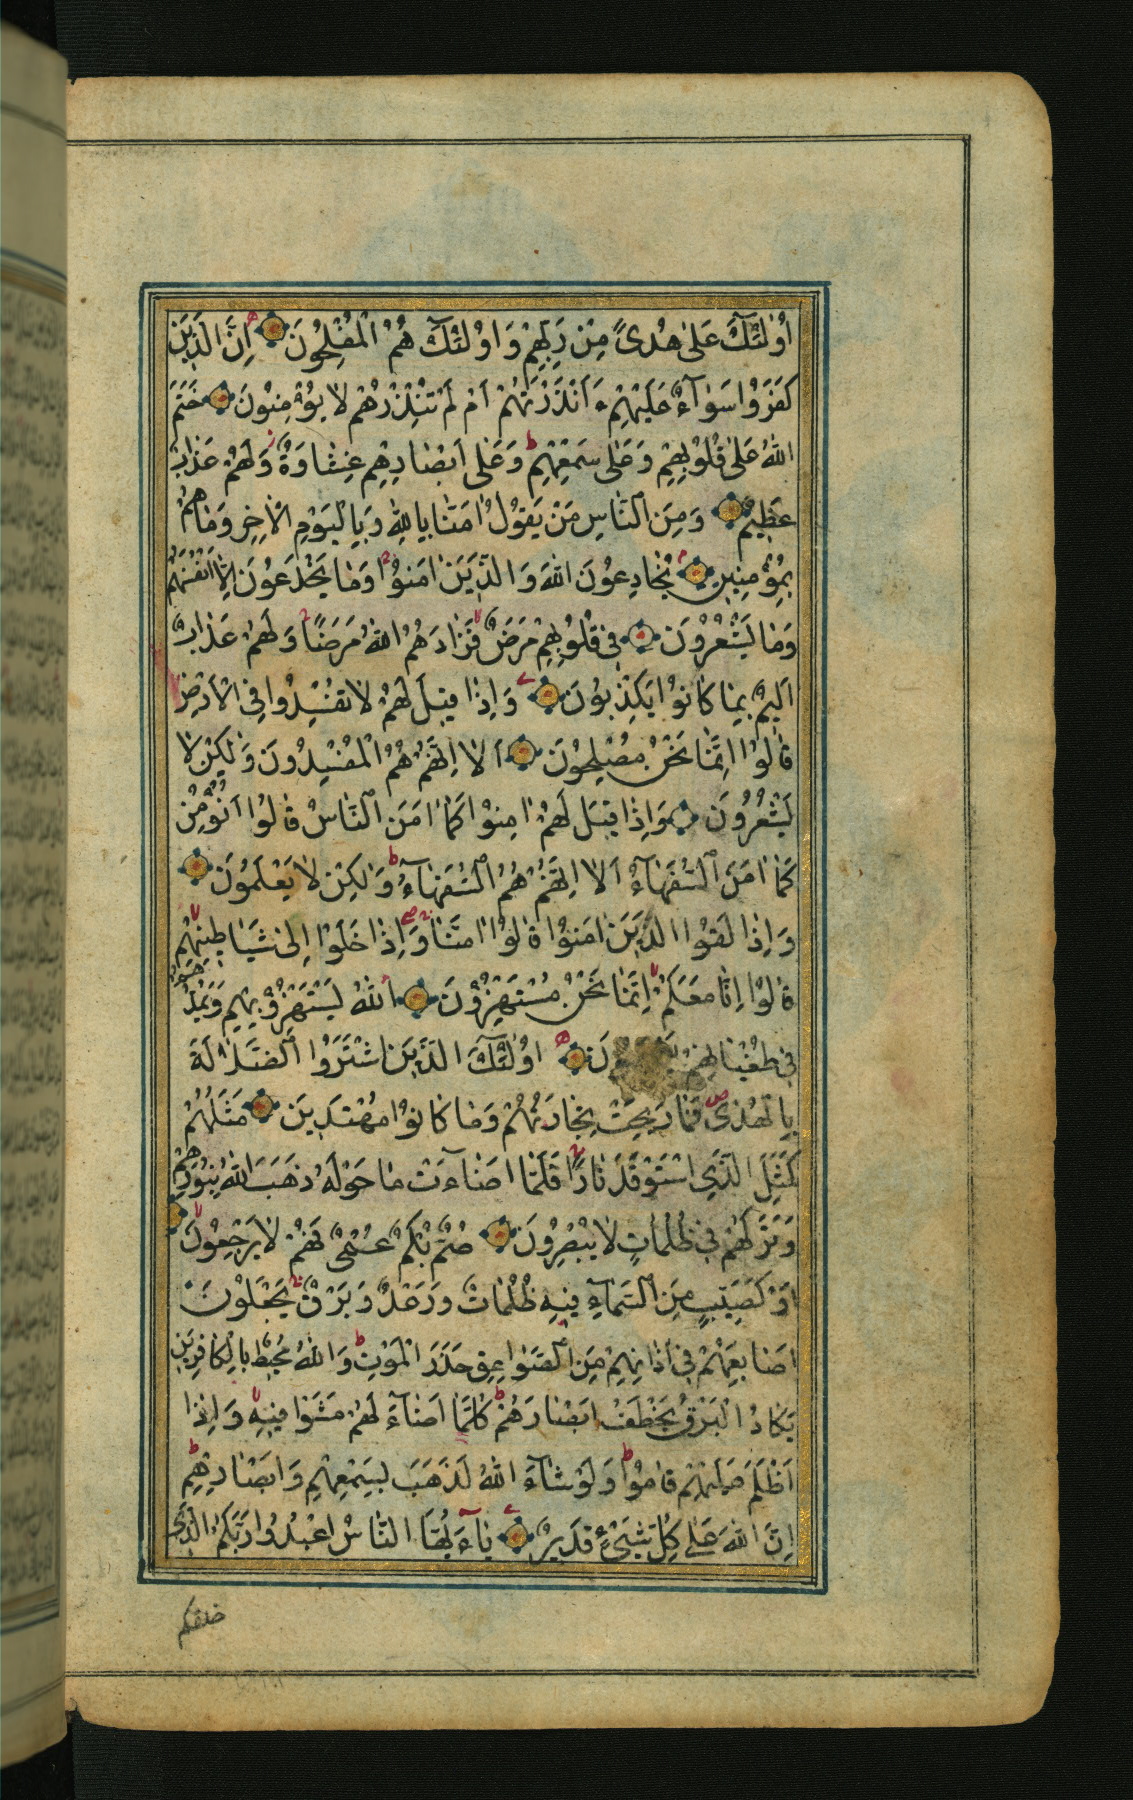 اُولٰٓئِكَ عَلٰى هُدىً مِنْ رَبِّهِمْ وَاُولٰٓئِكَ هُمُ الْمُفْلِحُونَ اِنَّ الَّذٖينَ
كَفَرُوْا سَوٰآءٌ عَلَيْهِمْ ءَاَنْذَرْتَهُمْ اَمْ لَمْ تُنْذِرْهُمْ لٰا يُؤْمِنُوْنَ خَتَمَ
اللّٰهُ عَلٰى قُلُوْبِهِمْ وَعَلٰى سَمْعِهِمْ وَعَلٰى اَبْصٰارِهِمْ غِشٰاوَةٌ وَلَهُمْ عَذٰابٌ
عَظٖيمٌ وَمِنَ النّٰاسِ مَنْ يَقُوْلُ اٰمَنّٰا بِاللّٰهِ وَبِالْيَوْمِ الْاٰخِرِ وَمٰا هُمْ
بِمُؤْمِنٖينَ يُخٰادِعُونَ اللّٰهَ وَالَّذٖينَ اٰمَنُوْا وَمٰا يَخْدَعُوْنَ اِلّٰا اَنْفُسَهُمْ
وَمٰا يَشْعُرُوْنَ فٖى قُلُوْبِهِمْ مَرَضٌ فَزٰادَهُمُ اللّٰهُ مَرَضًا وَلَهُمْ عَذٰابٌ
اَلٖيمٌ بِمٰا كٰانُوْا يَكْذِبُوْنَ وَاِذٰا قٖيلَ لَهُمْ لٰا تُفْسِدُوا فِى الْاَرْضِ
قٰالُوْا اِنَّمٰا نَحْنُ مُصْلِحُوْنَ اَلٰا اِنَّهُمْ هُمُ الْمُفْسِدُونَ وَلٰكِنْ لٰا
يَشْعُرُوْنَ وَاِذٰا قٖيلَ لَهُمْ اٰمِنُوْا كَمٰا اٰمَنَ النّٰاسُ قٰالُوْا اَنُؤْمِنُ
كَمٰا اٰمَنَ السُّفَهٰآءُ اَلٰا اِنَّهُمْ هُمُ السُّفَهٰآءُ وَلٰكِنْ لٰا يَعْلَمُوْنَ
وَاِذٰا لَقُوْا الَّذٖينَ اٰمَنُوْا قٰالُوْا اٰمَنّٰا وَاِذٰا خَلَوْا اِلٰى شَيٰاطٖينِهِمْ
قٰالُوْا اِنّٰا مَعَكُمْ اِنَّمٰا نَحْنُ مُسْتَهْزِؤُنَ اَللّٰهُ يَسْتَهْزِؤُ بِهِمْ وَيَمُدُّهُمْ
فٖى طُغْيٰانِهِمْ اُولٰٓئِكَ الَّذٖينَ اشْتَرَوُا الضَّلٰالَةَ
بِالْهُدٰى فَمٰا رَبِحَتْ تِجٰارَتُهُمْ وَمٰا كٰانُوْا مُهْتَدٖينَ مَثَلُهُمْ
كَمَثَلِ الَّذِى اسْتَوْقَدَ نٰارًا فَلَمّٰا اَضٰآءَتْ مٰا حَوْلَهُ ذَهَبَ اللّٰهُ بِنُوْرِهِمْ
وَتَرَكَهُمْ فٖى ظُلُمٰاتٍ لٰا يُبْصِرُوْنَ صُمٌّ بُكْمٌ عُمْىٌ فَهُمْ لٰا يَرْجِعُوْنَ
اَوْ كَصَيِّبٍ مِنَ السَّمٰآءِ فٖيهِ ظُلُمٰاتٌ وَرَعْدٌ وَبَرْقٌ يَجْعَلُوْنَ
اَصٰابِعَهُمْ فٖى اٰذٰانِهِمْ مِنَ الصَّوٰاعِقِ حَذَرَ الْمَوْتِ وَاللّٰهُ مُحٖيطٌ بِالْكٰافِرٖينَ
يَكٰادُ الْبَرْقُ يَخْطَفُ اَبْصٰارَهُمْ كُلَّمٰا اَضٰآءَ لَهُمْ مَشَوْا فٖيهِ وَاِذٰا
اَظْلَمَ عَلَيْهِمْ قٰامُوْا وَلَوْ شٰآءَ اللّٰهُ لَذَهَبَ بِسَمْعِهِمْ وَاَبْصٰارِهِمْ
اِنَّ اللّٰهَ عَلٰى كُلِّ شَىْءٍ قَدٖيرٌ يٰآ اَيُّهَا النّٰاسُ اعْبُدُوا رَبَّكُمُ الَّذٖى
خلقكم